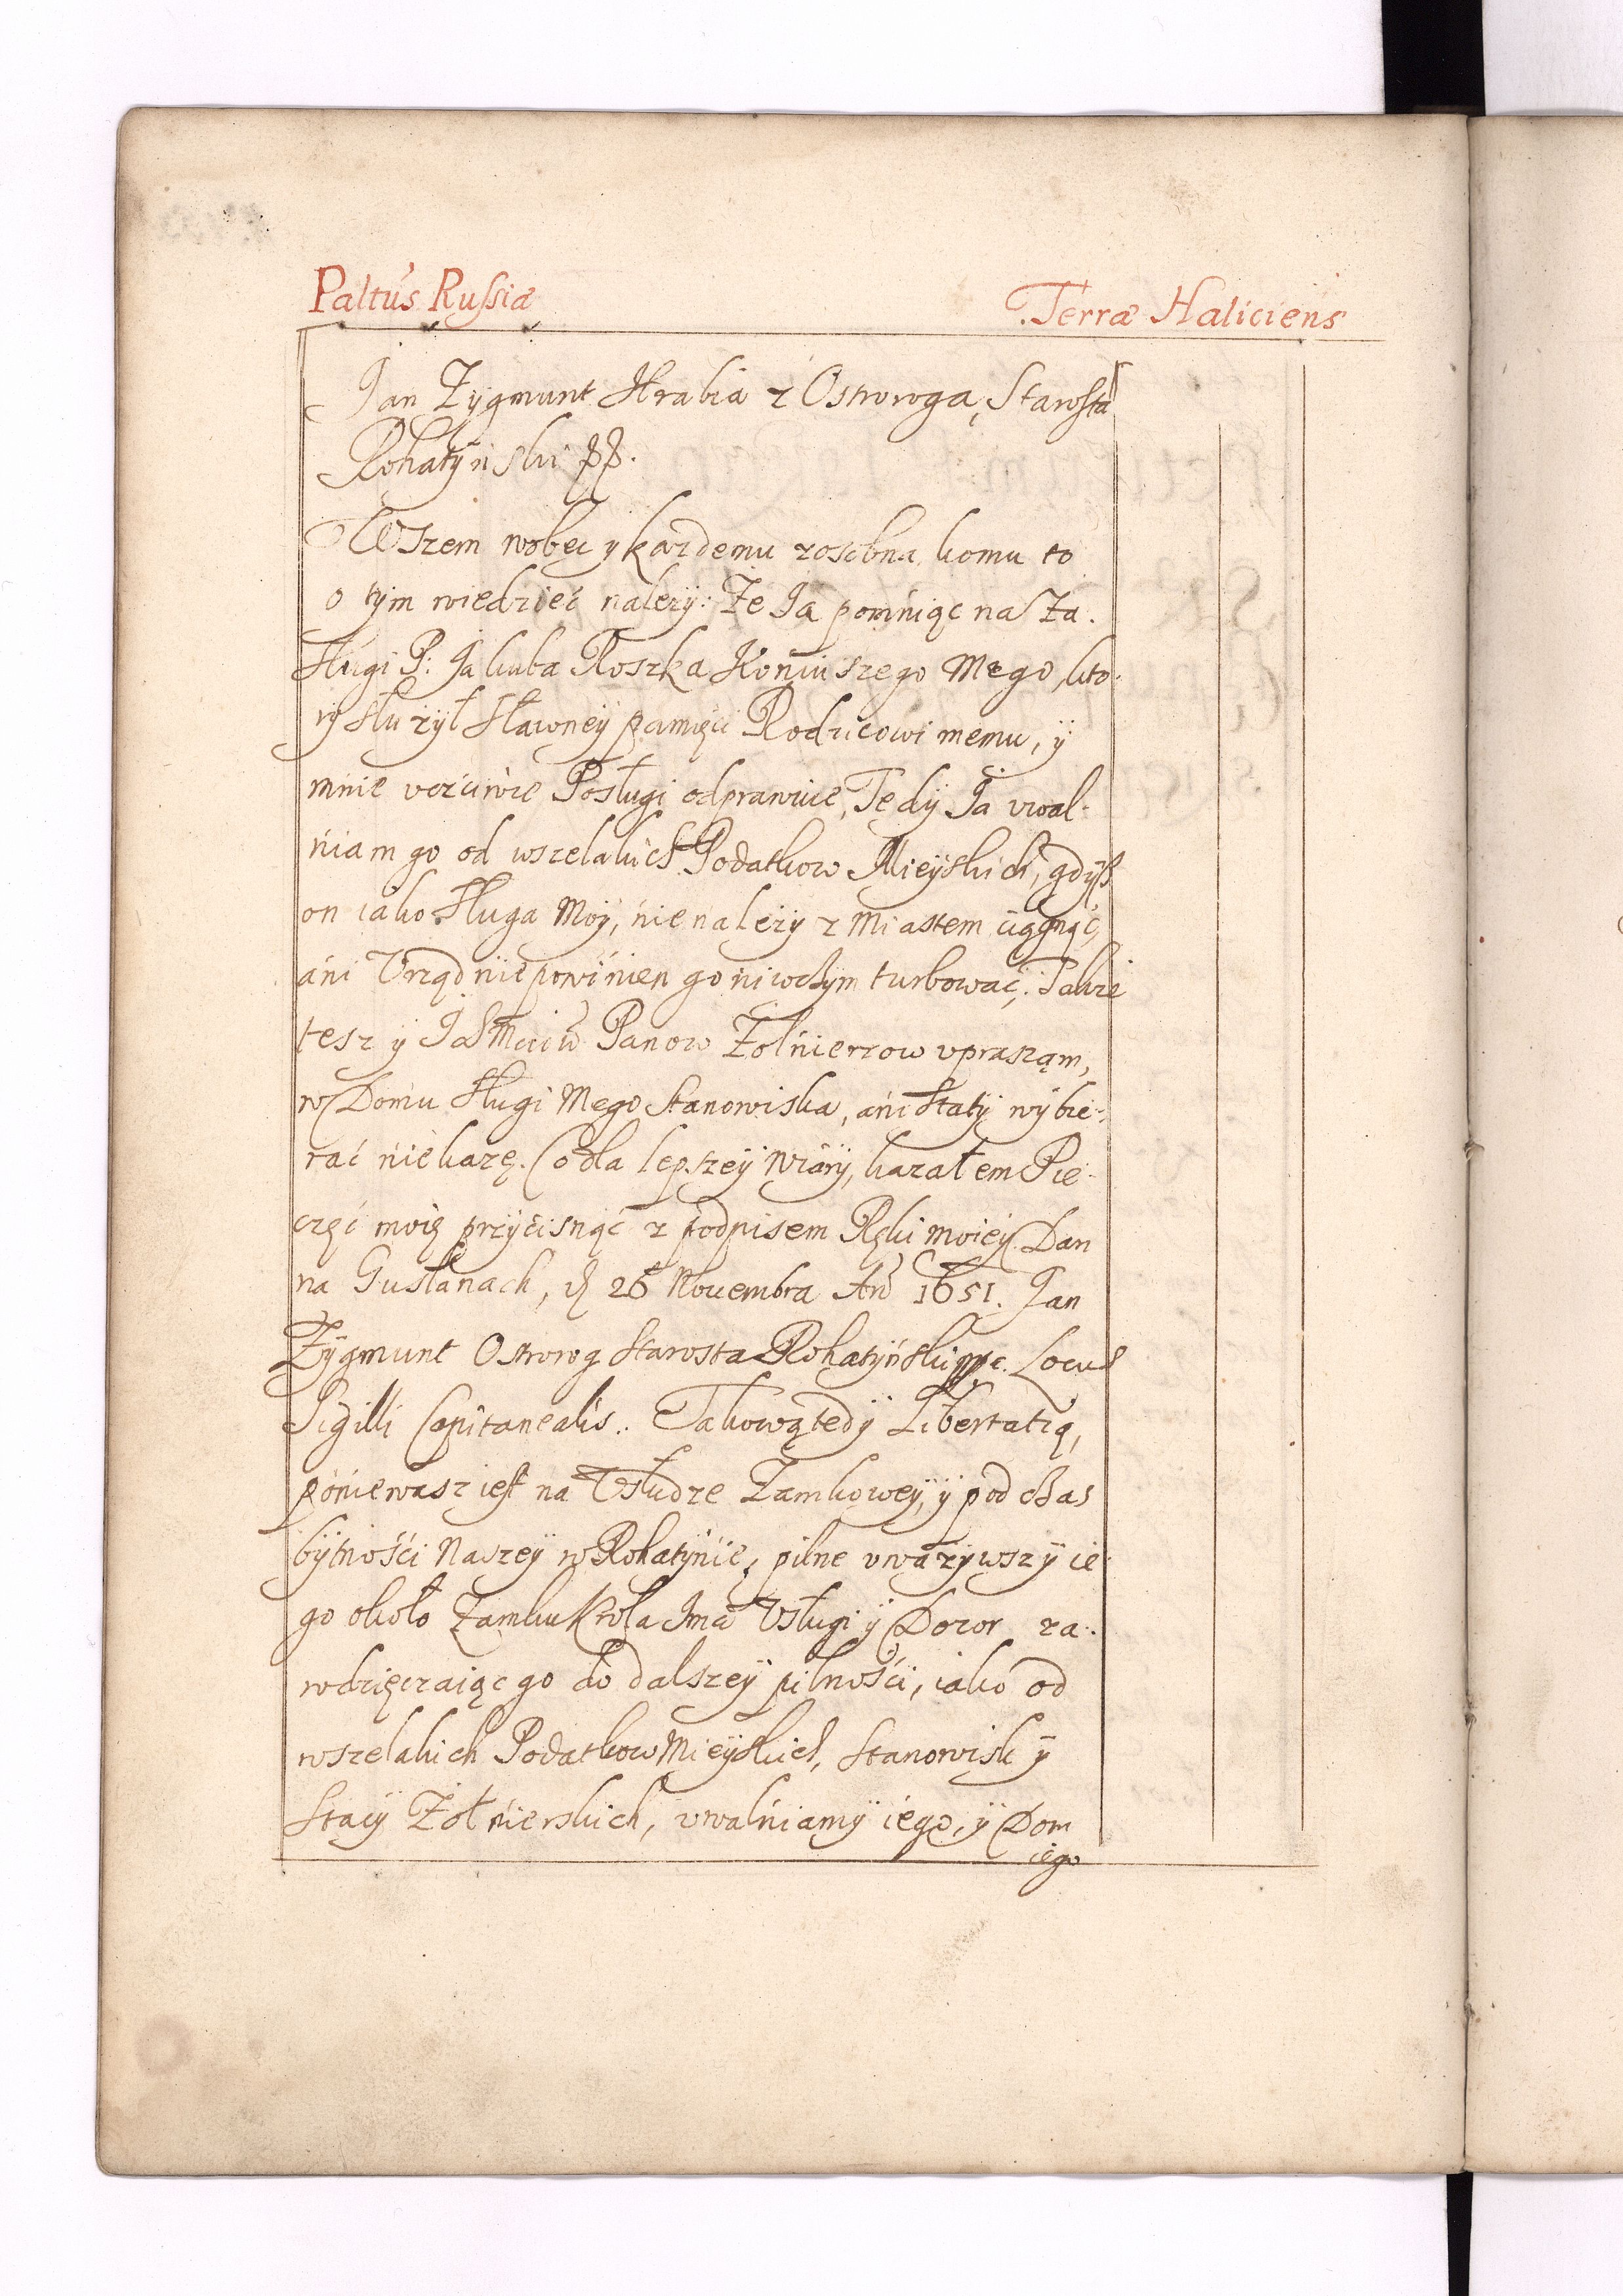 Paltus Russiæ
Terræ Haliciens
Jan Zygmunt Hrabia z Ostroroga, Starosta
Rohatyński pp.
Wszem wobec y każdemu zosobna komu to
o tym wiedzieć należy: Że Ja pomniąc na Za.
sługi P: Jakuba Roszka Koniuszego Mego, kto.
ry służył sławney pamięci Rodzicowi memu, y
mnie vczciwie Posługi odprawuie, Tedy Ja vwal.
niam go od wszelakich Podatkow Mieyskich, gdyß
on iako Sługa Moy, nie należy z Miastem ciągnąć,
ani Vrząd nie powinien go ni wczym turbować; Także
tesz y Ichmciów Panow Żołnierzow vpraszam,
w Domu Sługi Mego Stanowiska, ani Staty wybie-
rać nie każę. Co dla lepszey wiary, kazałem Pie-
częć moię przycisnąć z podpisem Ręki moiey. Dan
na Gusłanach, d 26 Nouembra An̄o 1651. Jan
Zygmunt Ostrorog Starosta Rohatyński mpc. Locus
Sigilli Capitanealis. Takową tedy Libertatią,
poniewasz iest na Vsłudze Zamkowey, y pod czas
bytności Naszey w Rohatynie, pilne vważywszy ie.
go około Zamku Krola Jmci Vsługi y Dozor za.
wdzięczaiąc go do dalszey pilności, iako od
wszelakich Podatkow Mieyskich, Stanowisk y
Stacy Żołnierskich, vwalniamy iego, y Dom
iego